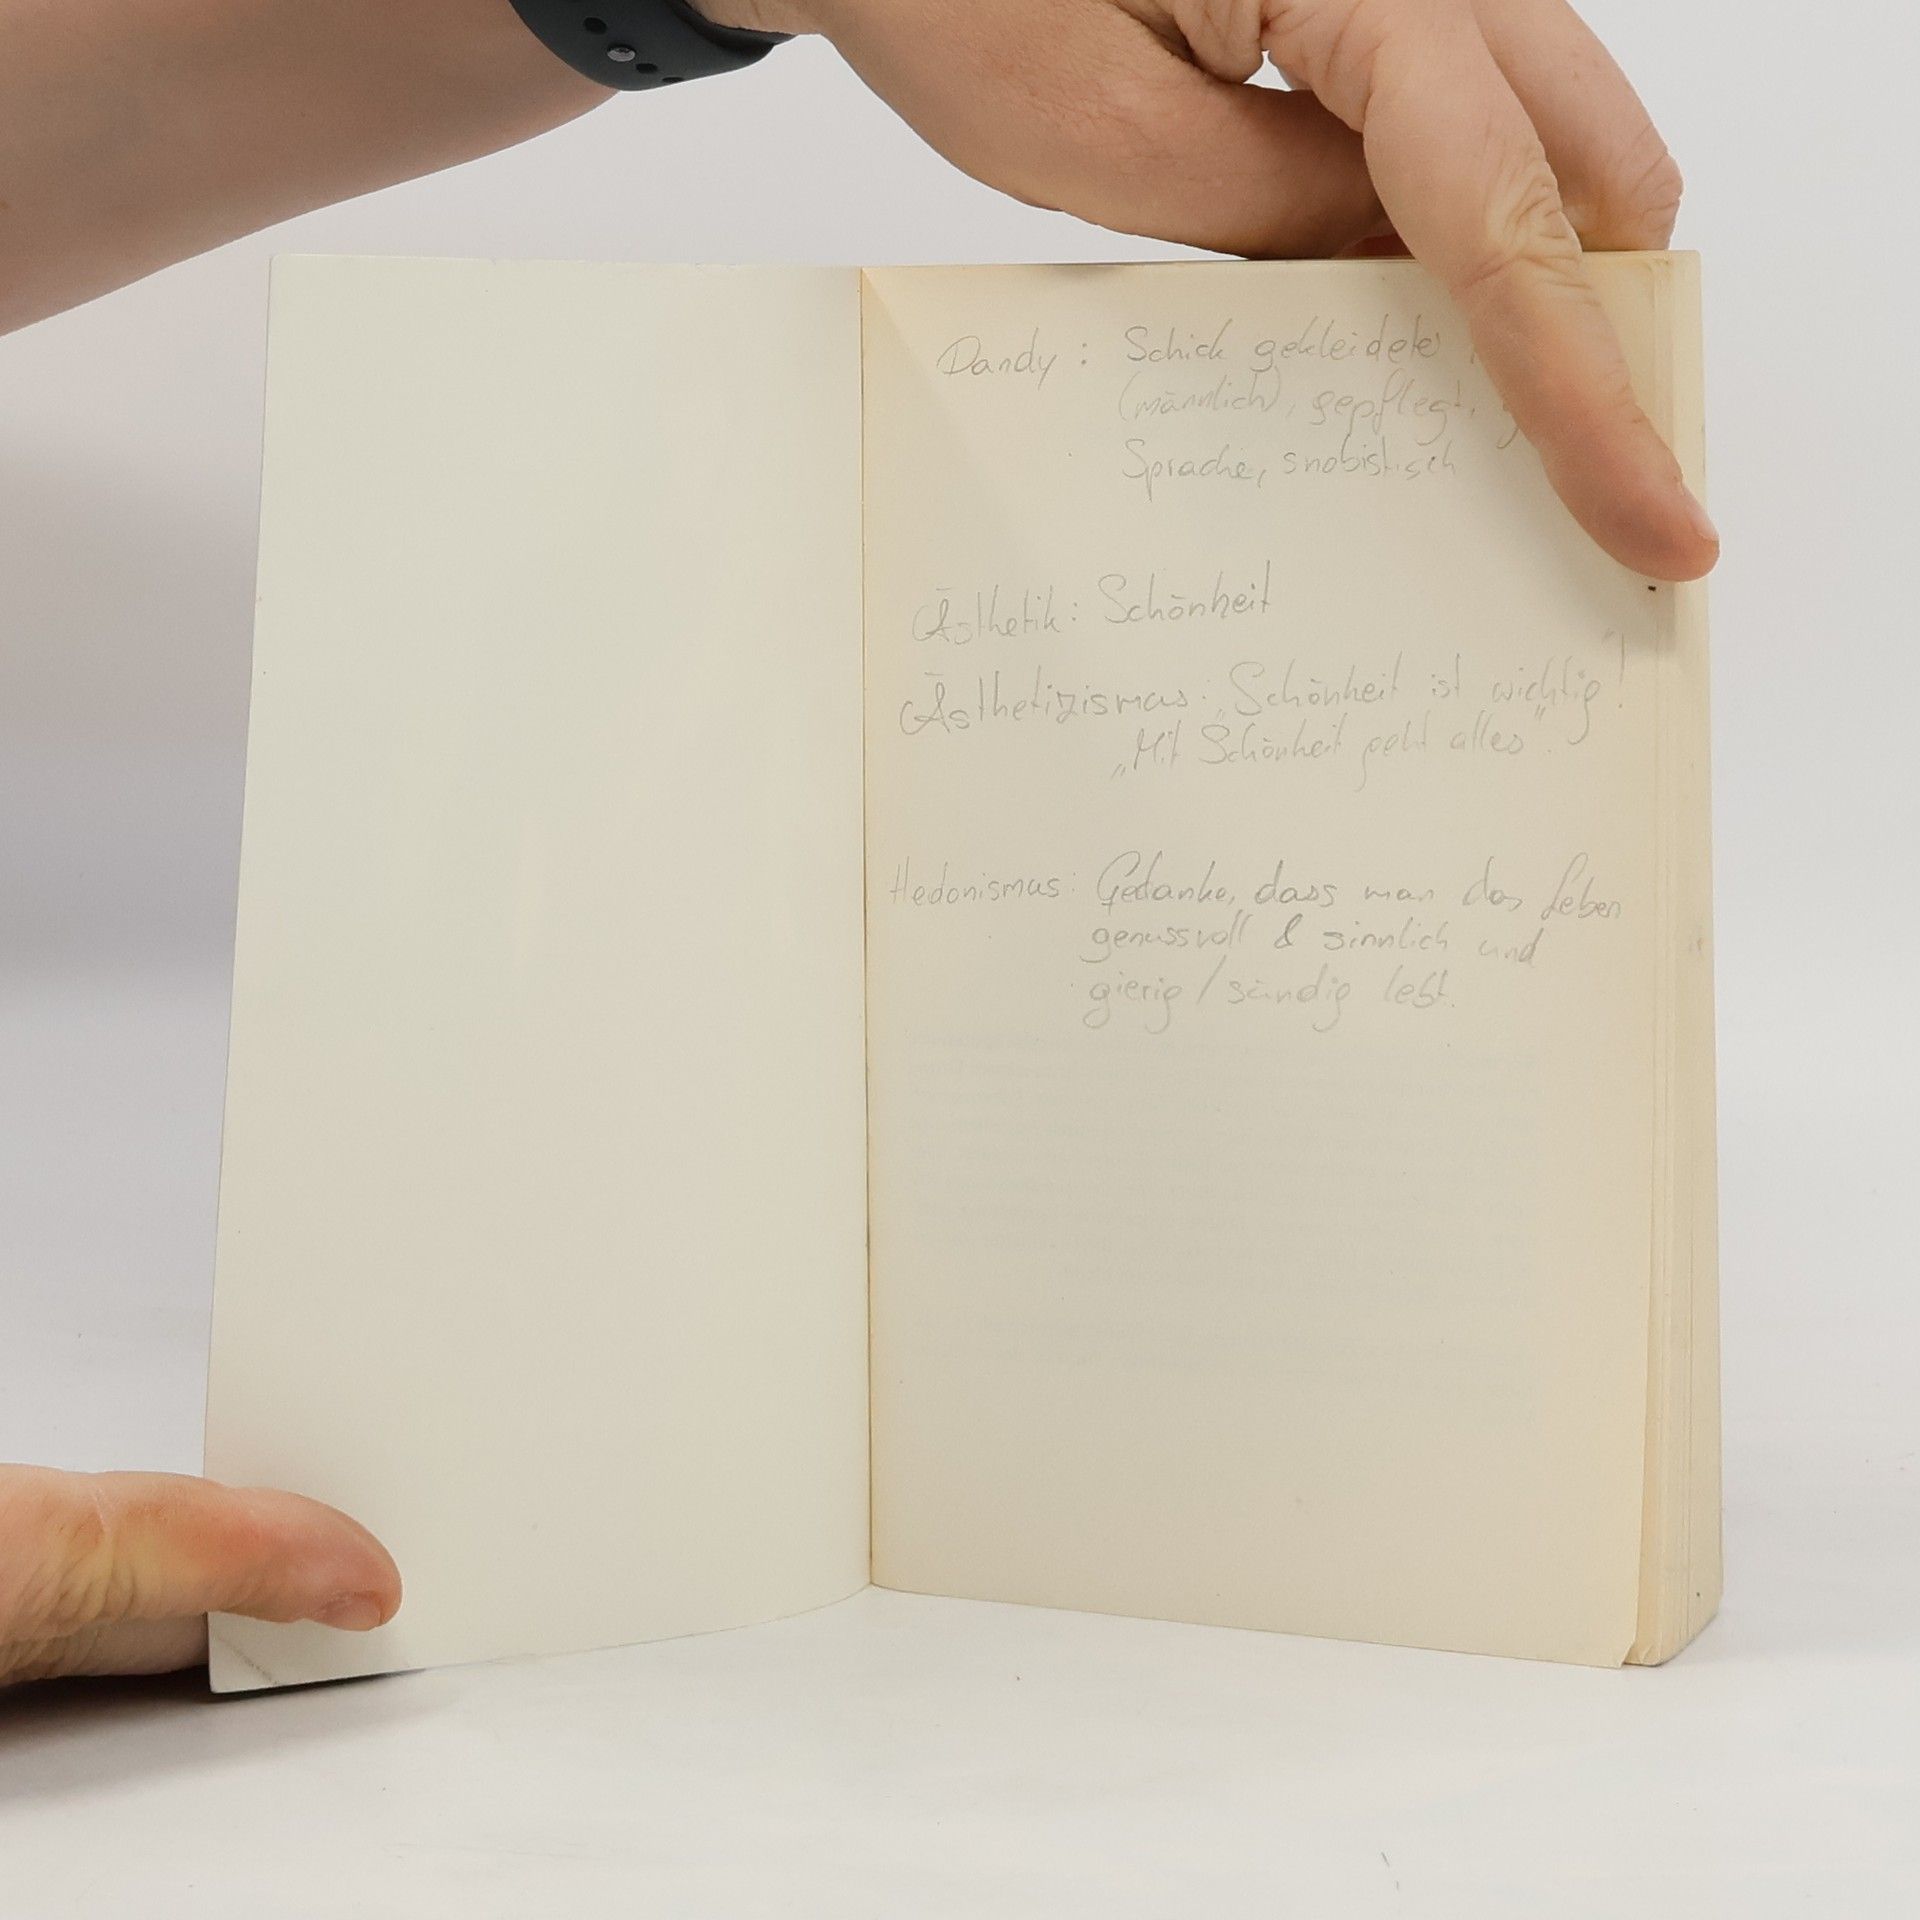 Dandy: Schick gekleideter
(männlich), gepflegt,
Sprache, snobistisch
Ästhetik: Schönheit
Ästhetizismus: „Schönheit ist wichtig!“
„Mit Schönheit geht alles“.
Hedonismus: Gedanke, dass man das Leben
genussvoll & sinnlich und
gierig/sündig lebt.